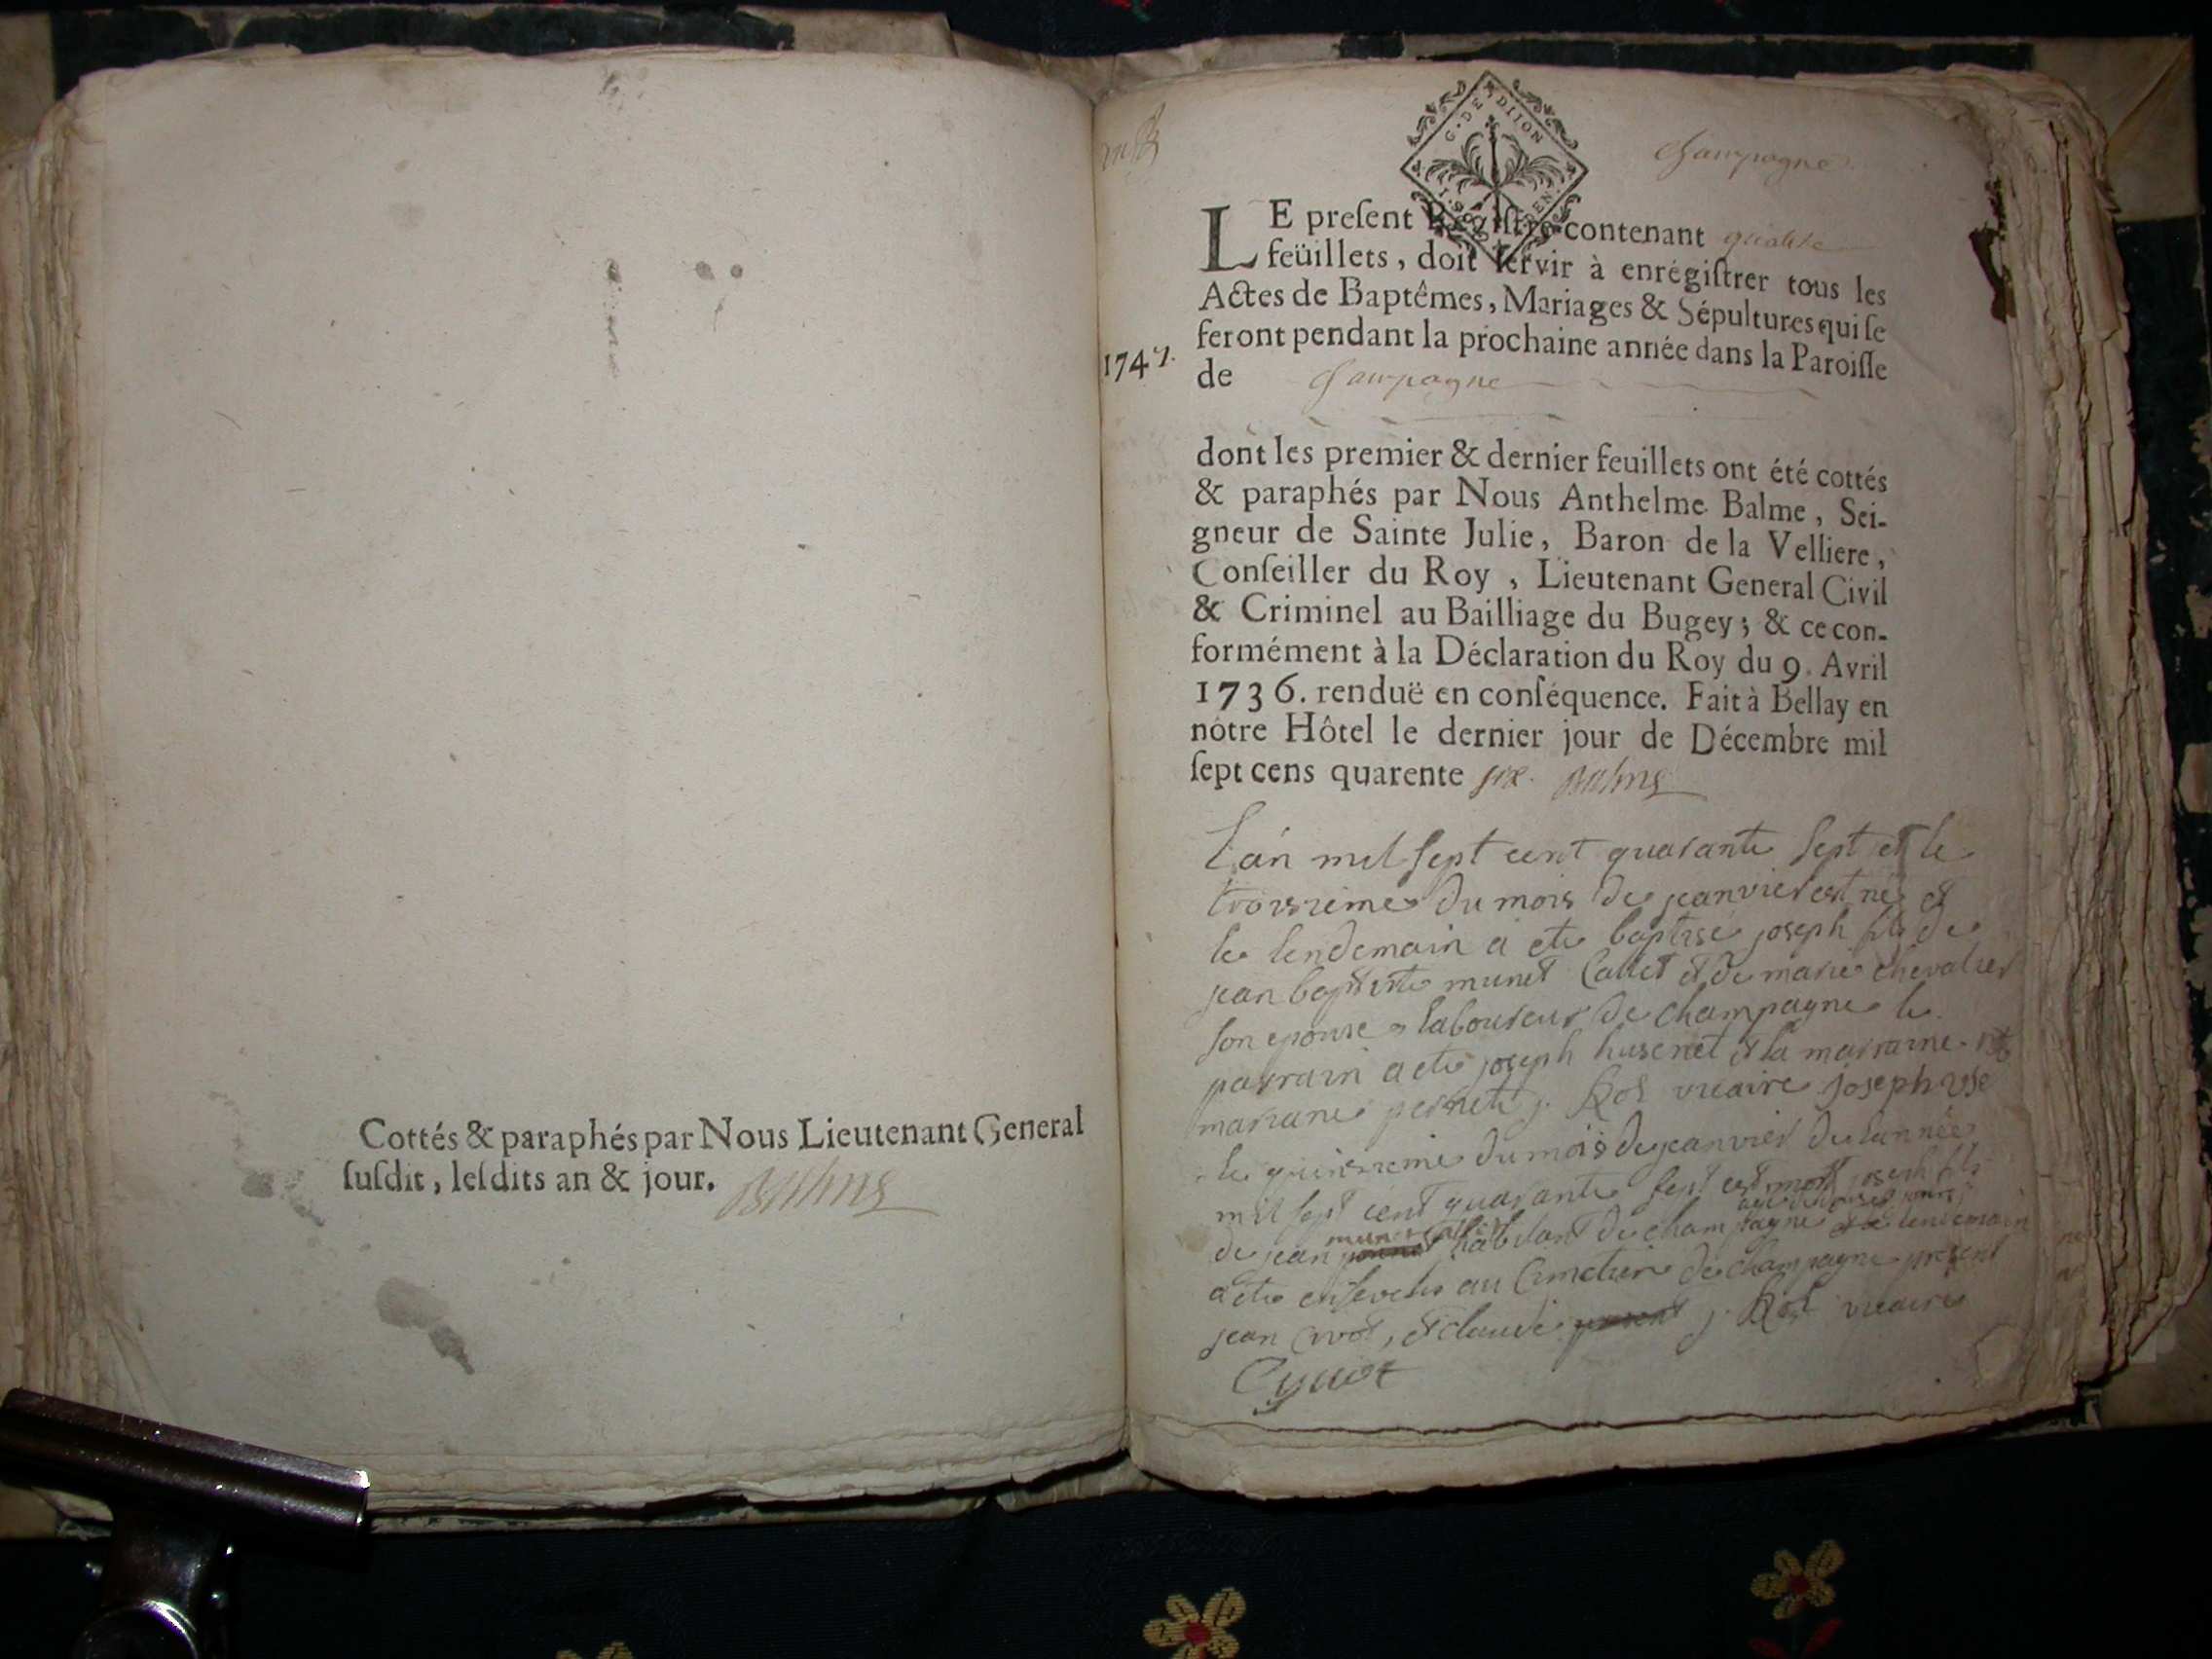 Cottés & paraphés par Nous Lieutenant General
ſuſdit, leſdits an & jour. Balme
G·DE DIION
Champagne
LE preſent Regiſtre contenant quatre
feüillets, doit ſervir à enrégiſtrer tous les
Actes de Baptêmes, Mariages & Sépultures qui ſe
feront pendant la prochaine année dans la Paroiſſe
1747.
de Champagne
dont les premier & dernier feuillets ont été cottés
& paraphés par Nous Anthelme Balme, Sei-
gneur de Sainte Julie, Baron de la Velliere,
Conſeiller du Roy, Lieutenant General Civil
& Criminel au Bailliage du Bugey; & ce con-
formément à la Déclaration du Roy du 9. Avril
1736. renduë en conſéquence. Fait à Bellay en
nôtre Hôtel le dernier jour de Décembre mil
ſept cens quarente six. Balme
L'an mil sept cent quarante sept et le
troisieme du mois de jeanvier est né et
le lendemain a ete baptisé joseph fils de
jean baptiste munet Callet et de marie chevalier
son epouse laboureur de champagne le
parrain a ete joseph husenet et la marraine
mariane pernet j. Rol vicaire joseph
le quinzieme du mois de jeanvier de l'année
mil sept cent quarante sept est mort joseph fils
agé de douze jours
de jean munet Callet habitant de champagne et le lendemain
a ete enseveli au Cimetiere de champagne present
jean Cyvot, et claude j. Rol vicaire
Cyuot